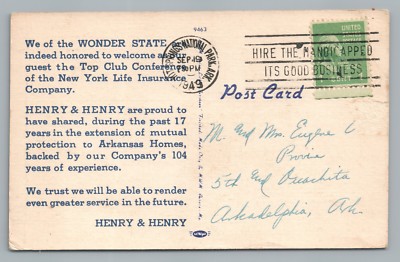 9463
We of the WONDER STATE
indeed honored to welcome as our
guest the Top Club Conference
of the New York Life Insurance
Company.
HENRY & HENRY are proud to
have shared, during the past 17
years in the extension of mutual
protection to Arkansas Homes,
backed by our Company's 104
years of experience.
We trust we will be able to render
even greater service in the future.
HENRY & HENRY
NATIONAL PARK, ARK.
SEP
PM
1949
HIRE THE HANDICAPPED
ITS GOOD BUSINESS
UNITED
Post Card
M. and Mrs. Eugene C
5th and Ouachita
Arkadelphia, Ark.